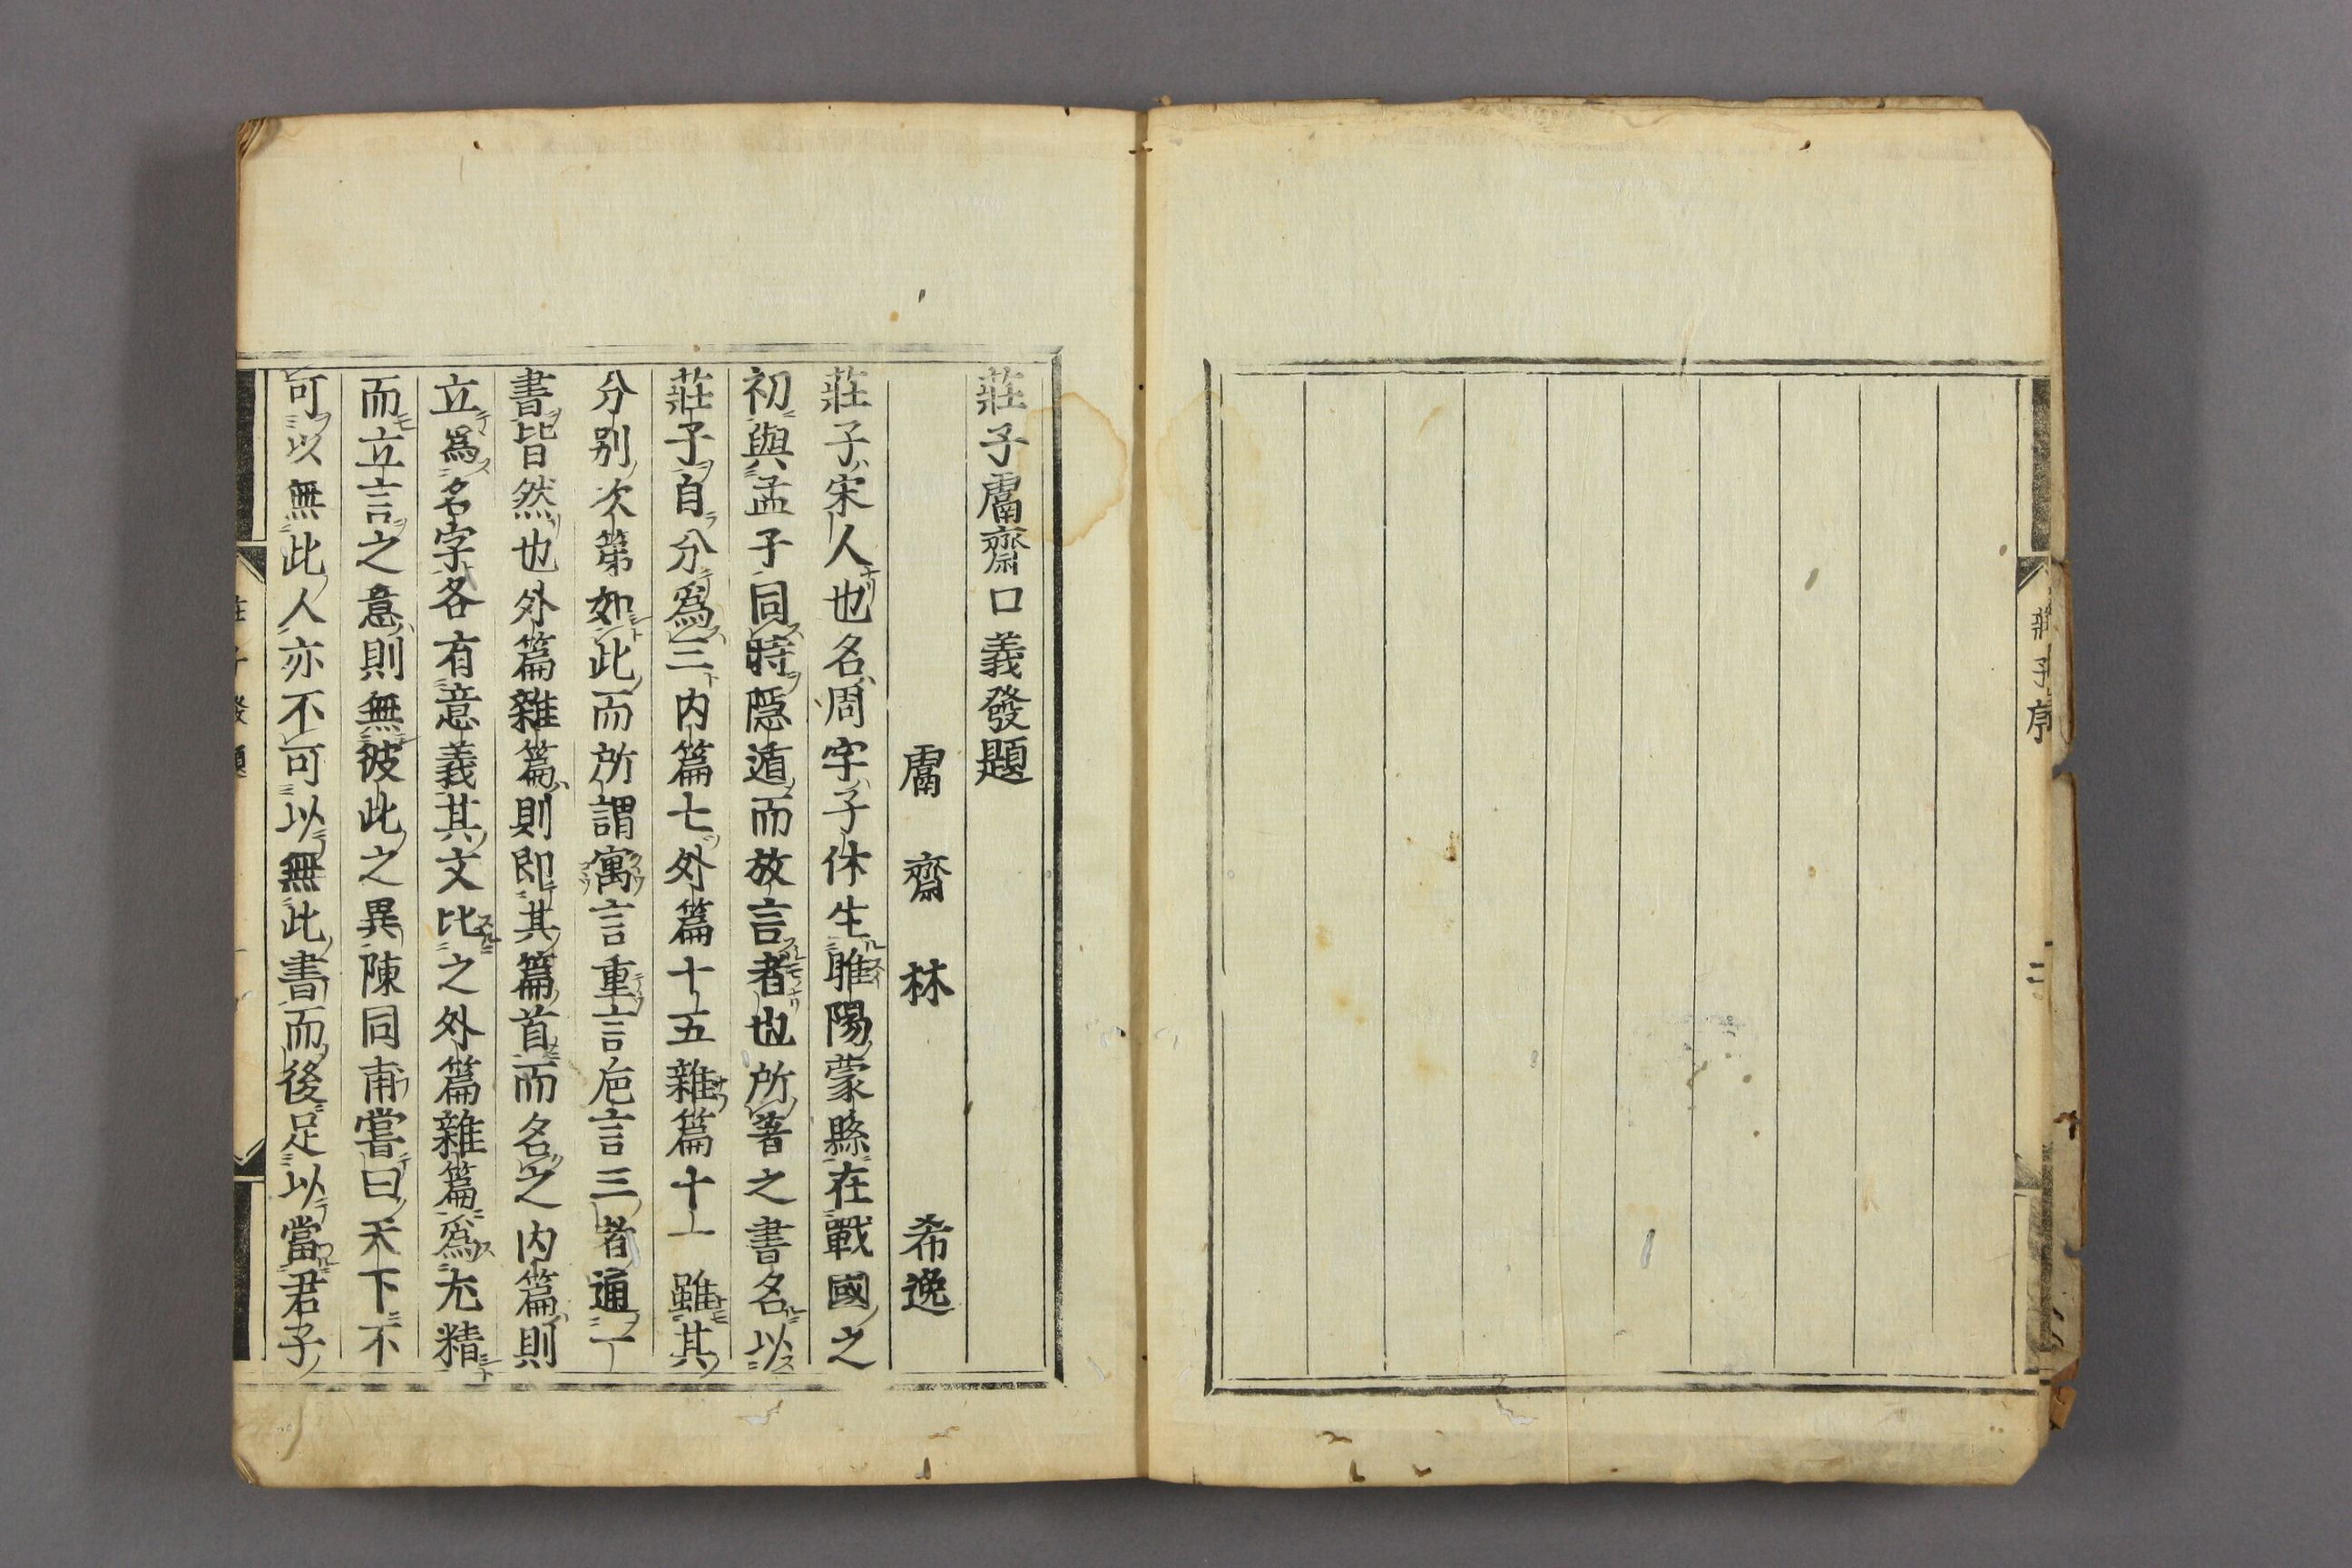 莊子序
二
莊子鬳齋口義發題
鬳齋林 希逸
莊子宋人也名周字子休生睢陽蒙縣在戰國之
初與孟子同時隱遁而放言者也所著之書名以
莊子自分爲三内篇七外篇十五雜篇十一雖其
分别次第如此而所謂寓言重言巵言三者通一
書皆然也外篇雜篇則即其篇首而名之内篇則
立爲名字各有意義其文比之外篇雜篇爲尤精
而立言之意則無彼此之異陳同甫嘗曰天下不
可以無此人亦不可以無此書而後足以當君子
莊子發題